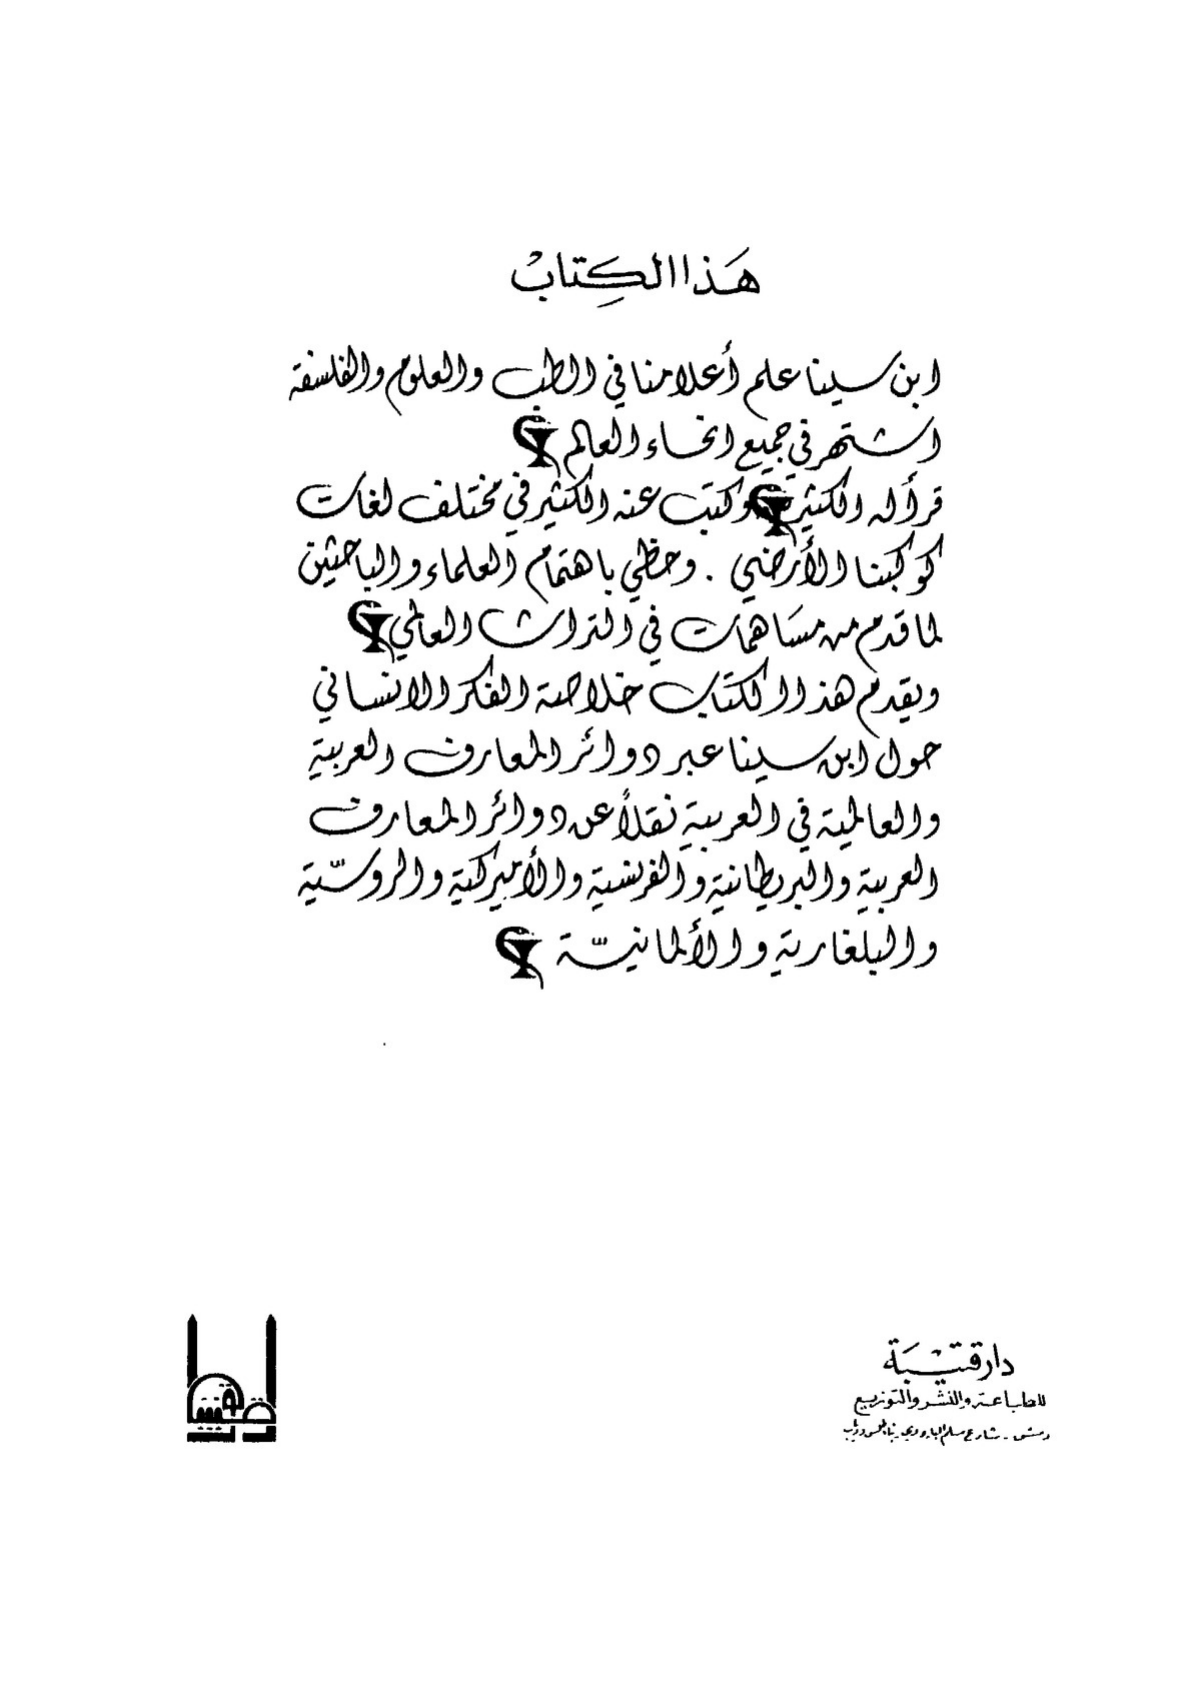 هَذا الكِتابْ
ابن سينا علم أعلامنا في الطب والعلوم والفلسفة
اشتهر في جميع انحاء العالم
قرأ له الكثير وكتب عنه الكثير في مختلف لغات
كوكبنا الأرضي . وحظي باهتمام العلماء والباحثين
لما قدم من مسَاهمات في التراث العالمي
ويقدم هذا الكتاب خلاصة الفكر الانساني
حول ابن سينا عبر دوائر المعارف العربية
والعالمية في العربية نقلاً عن دوائر المعارف
العربية والبريطانية والفرنسية والأميركية والروسّية
والبلغارية والألمانيّة
دار قتيْبَة
للطباعة والنشر والتوزيع
دمشق - شارع مسلم البارودي -